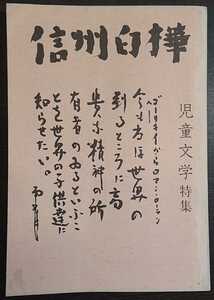 信州白樺
児童文学特集
ゴーリキイからロマン・ロラン
今も尚ほ世界の
到るところに高
貴な精神の所
有者のゐるといふこ
とを世界の子供達に
知らせたい。